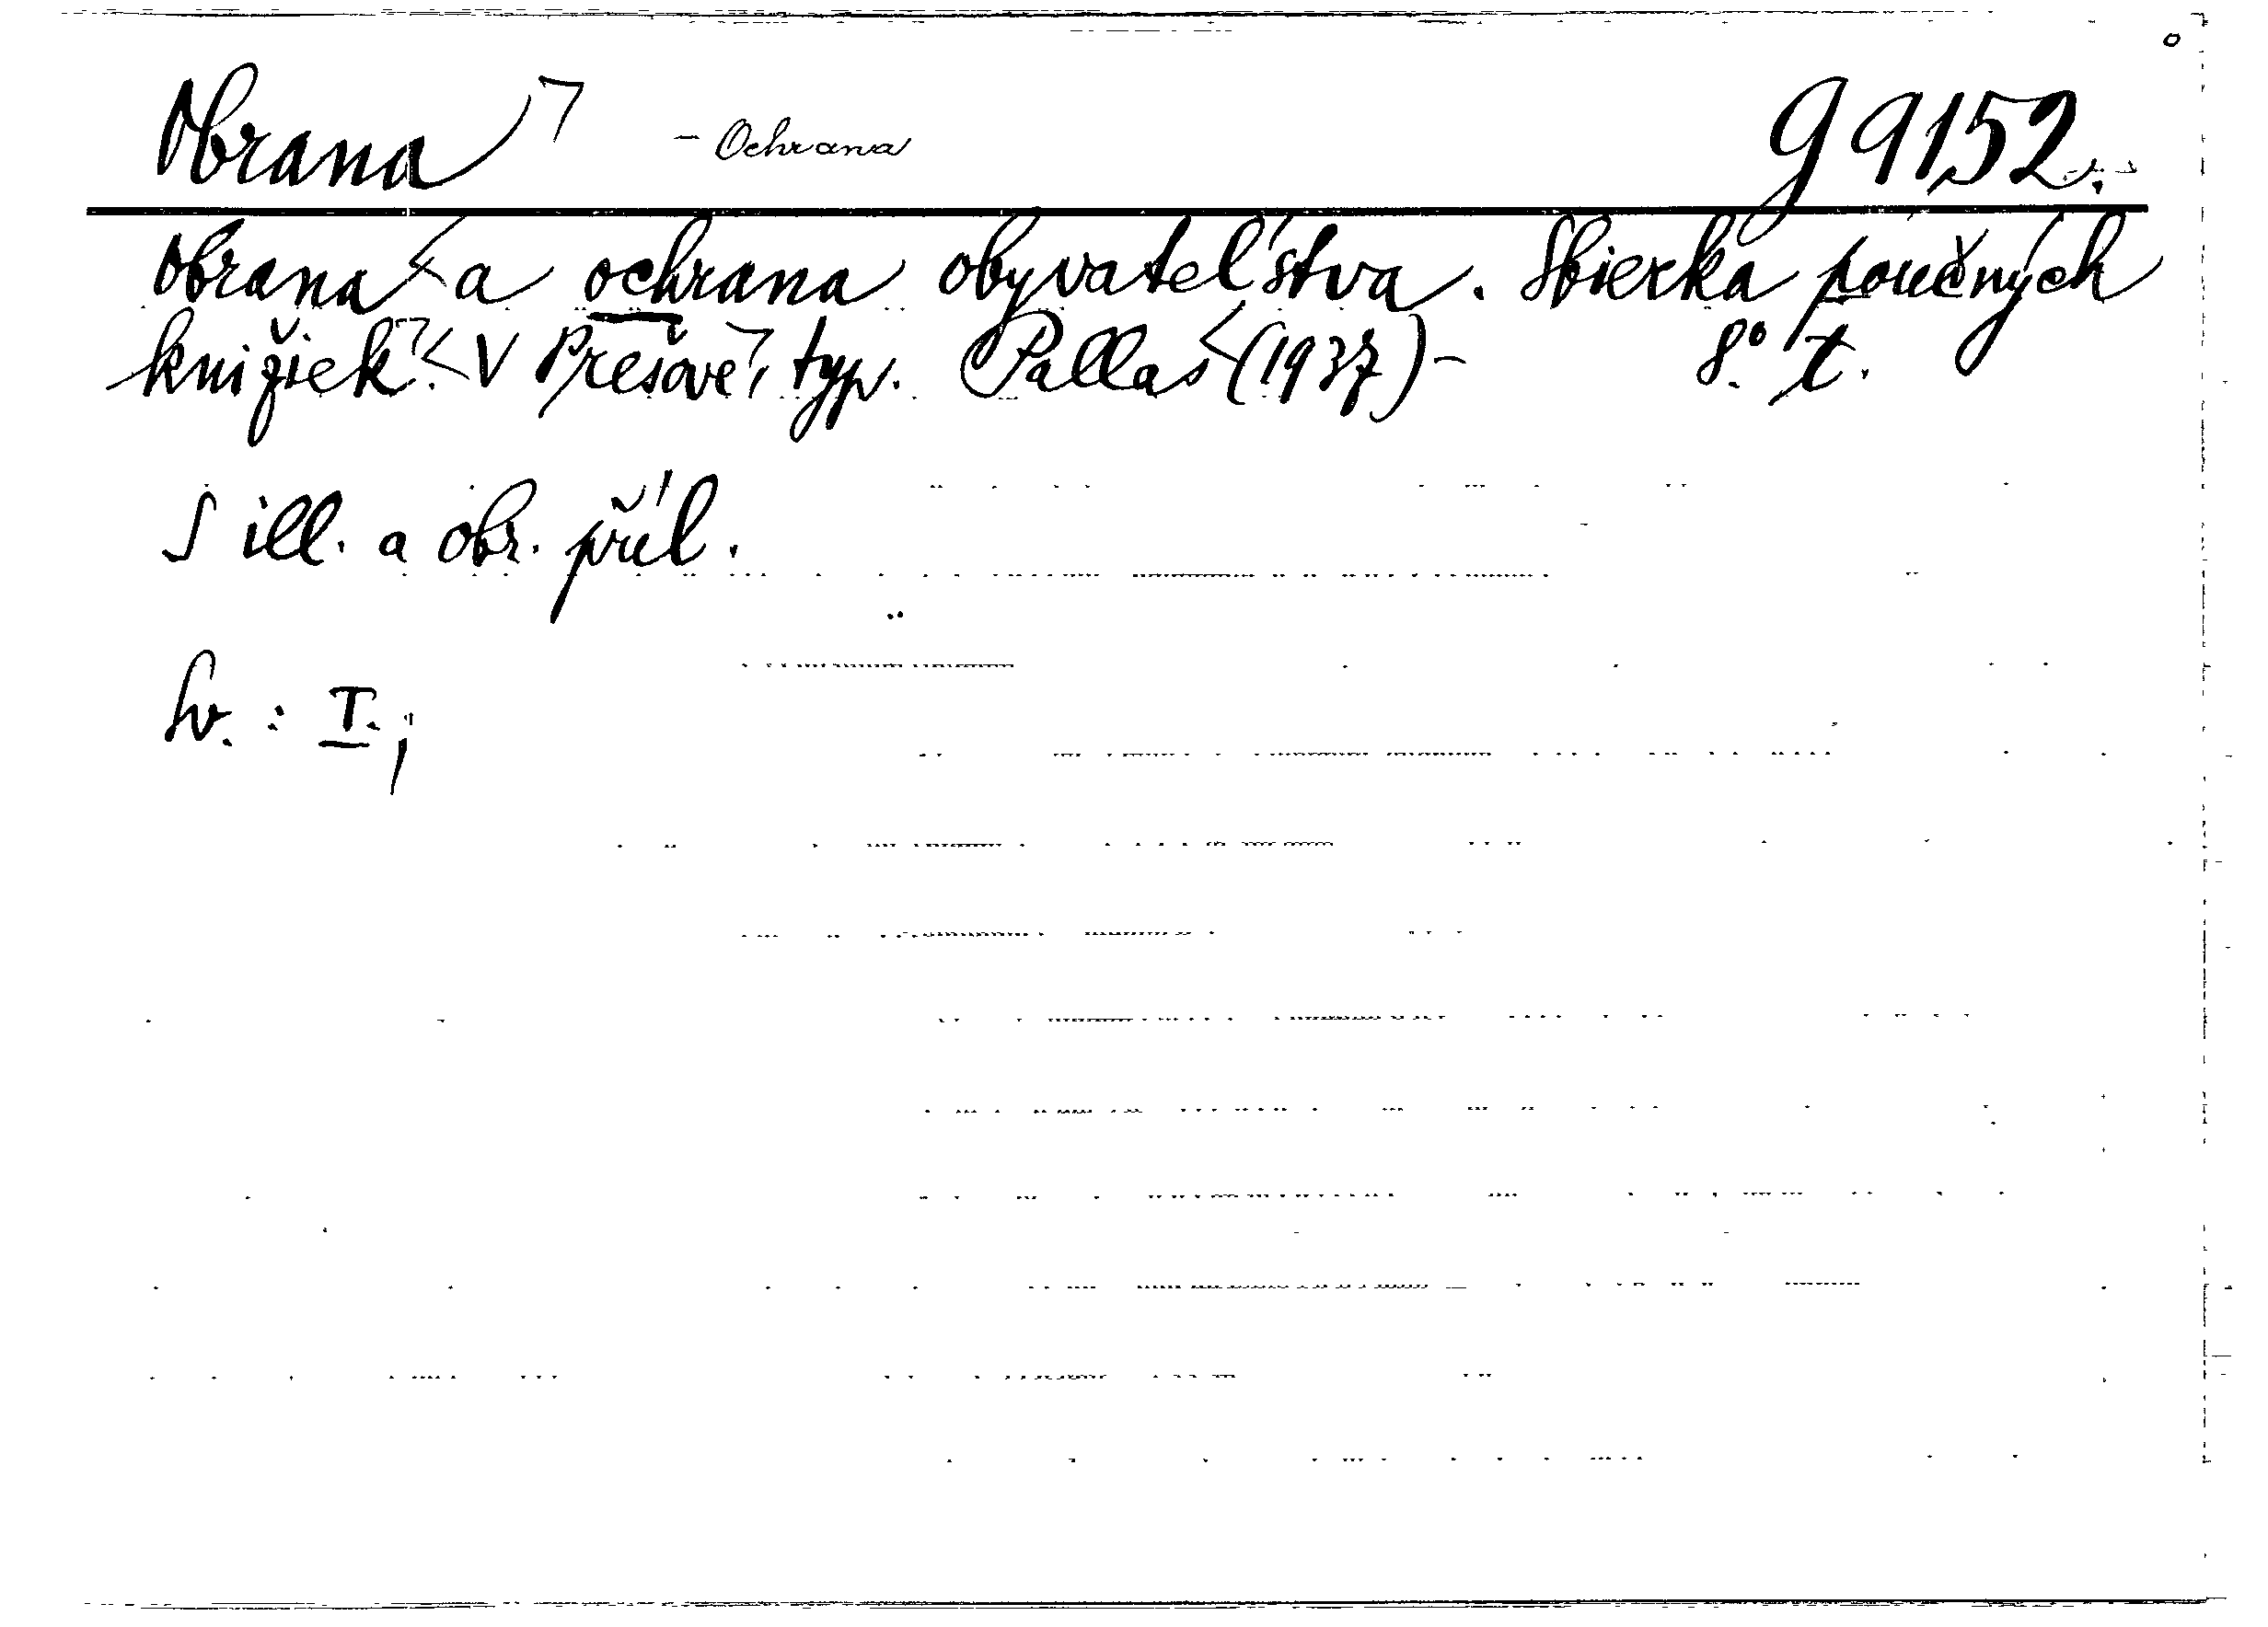 Obrana - Ochrana g 9152.
Obrana a ochrana obyvateľstva. Sbierka poučných
knižiek. V Prešově, typ. Pallas (1937) - 8° t.
S ill. a obr. příl.
Sv.: I.;